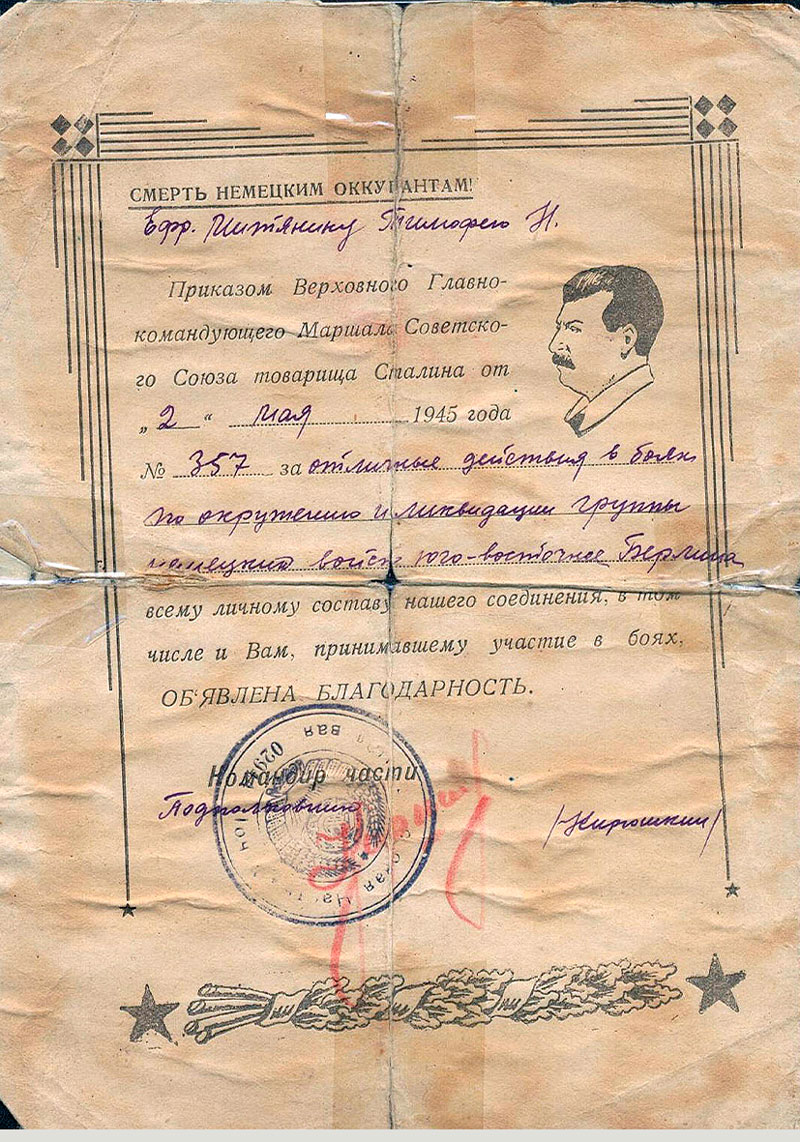 СМЕРТЬ НЕМЕЦКИМ ОККУПАНТАМ!
Ефр. Читянину Тимофею Н.
Приказом Верховного Главно-
командующего Маршала Советско-
го Союза товарища Сталина от
„2“ мая 1945 года
№ 357 за отличные действия в боях
по окружению и ликвидации группы
немецких войск юго-восточнее Берлина
всему личному составу нашего соединения, в том
числе и Вам, принимавшему участие в боях,
ОБ'ЯВЛЕНА БЛАГОДАРНОСТЬ.
Командир части
Подполковник
/Кирюшкин/